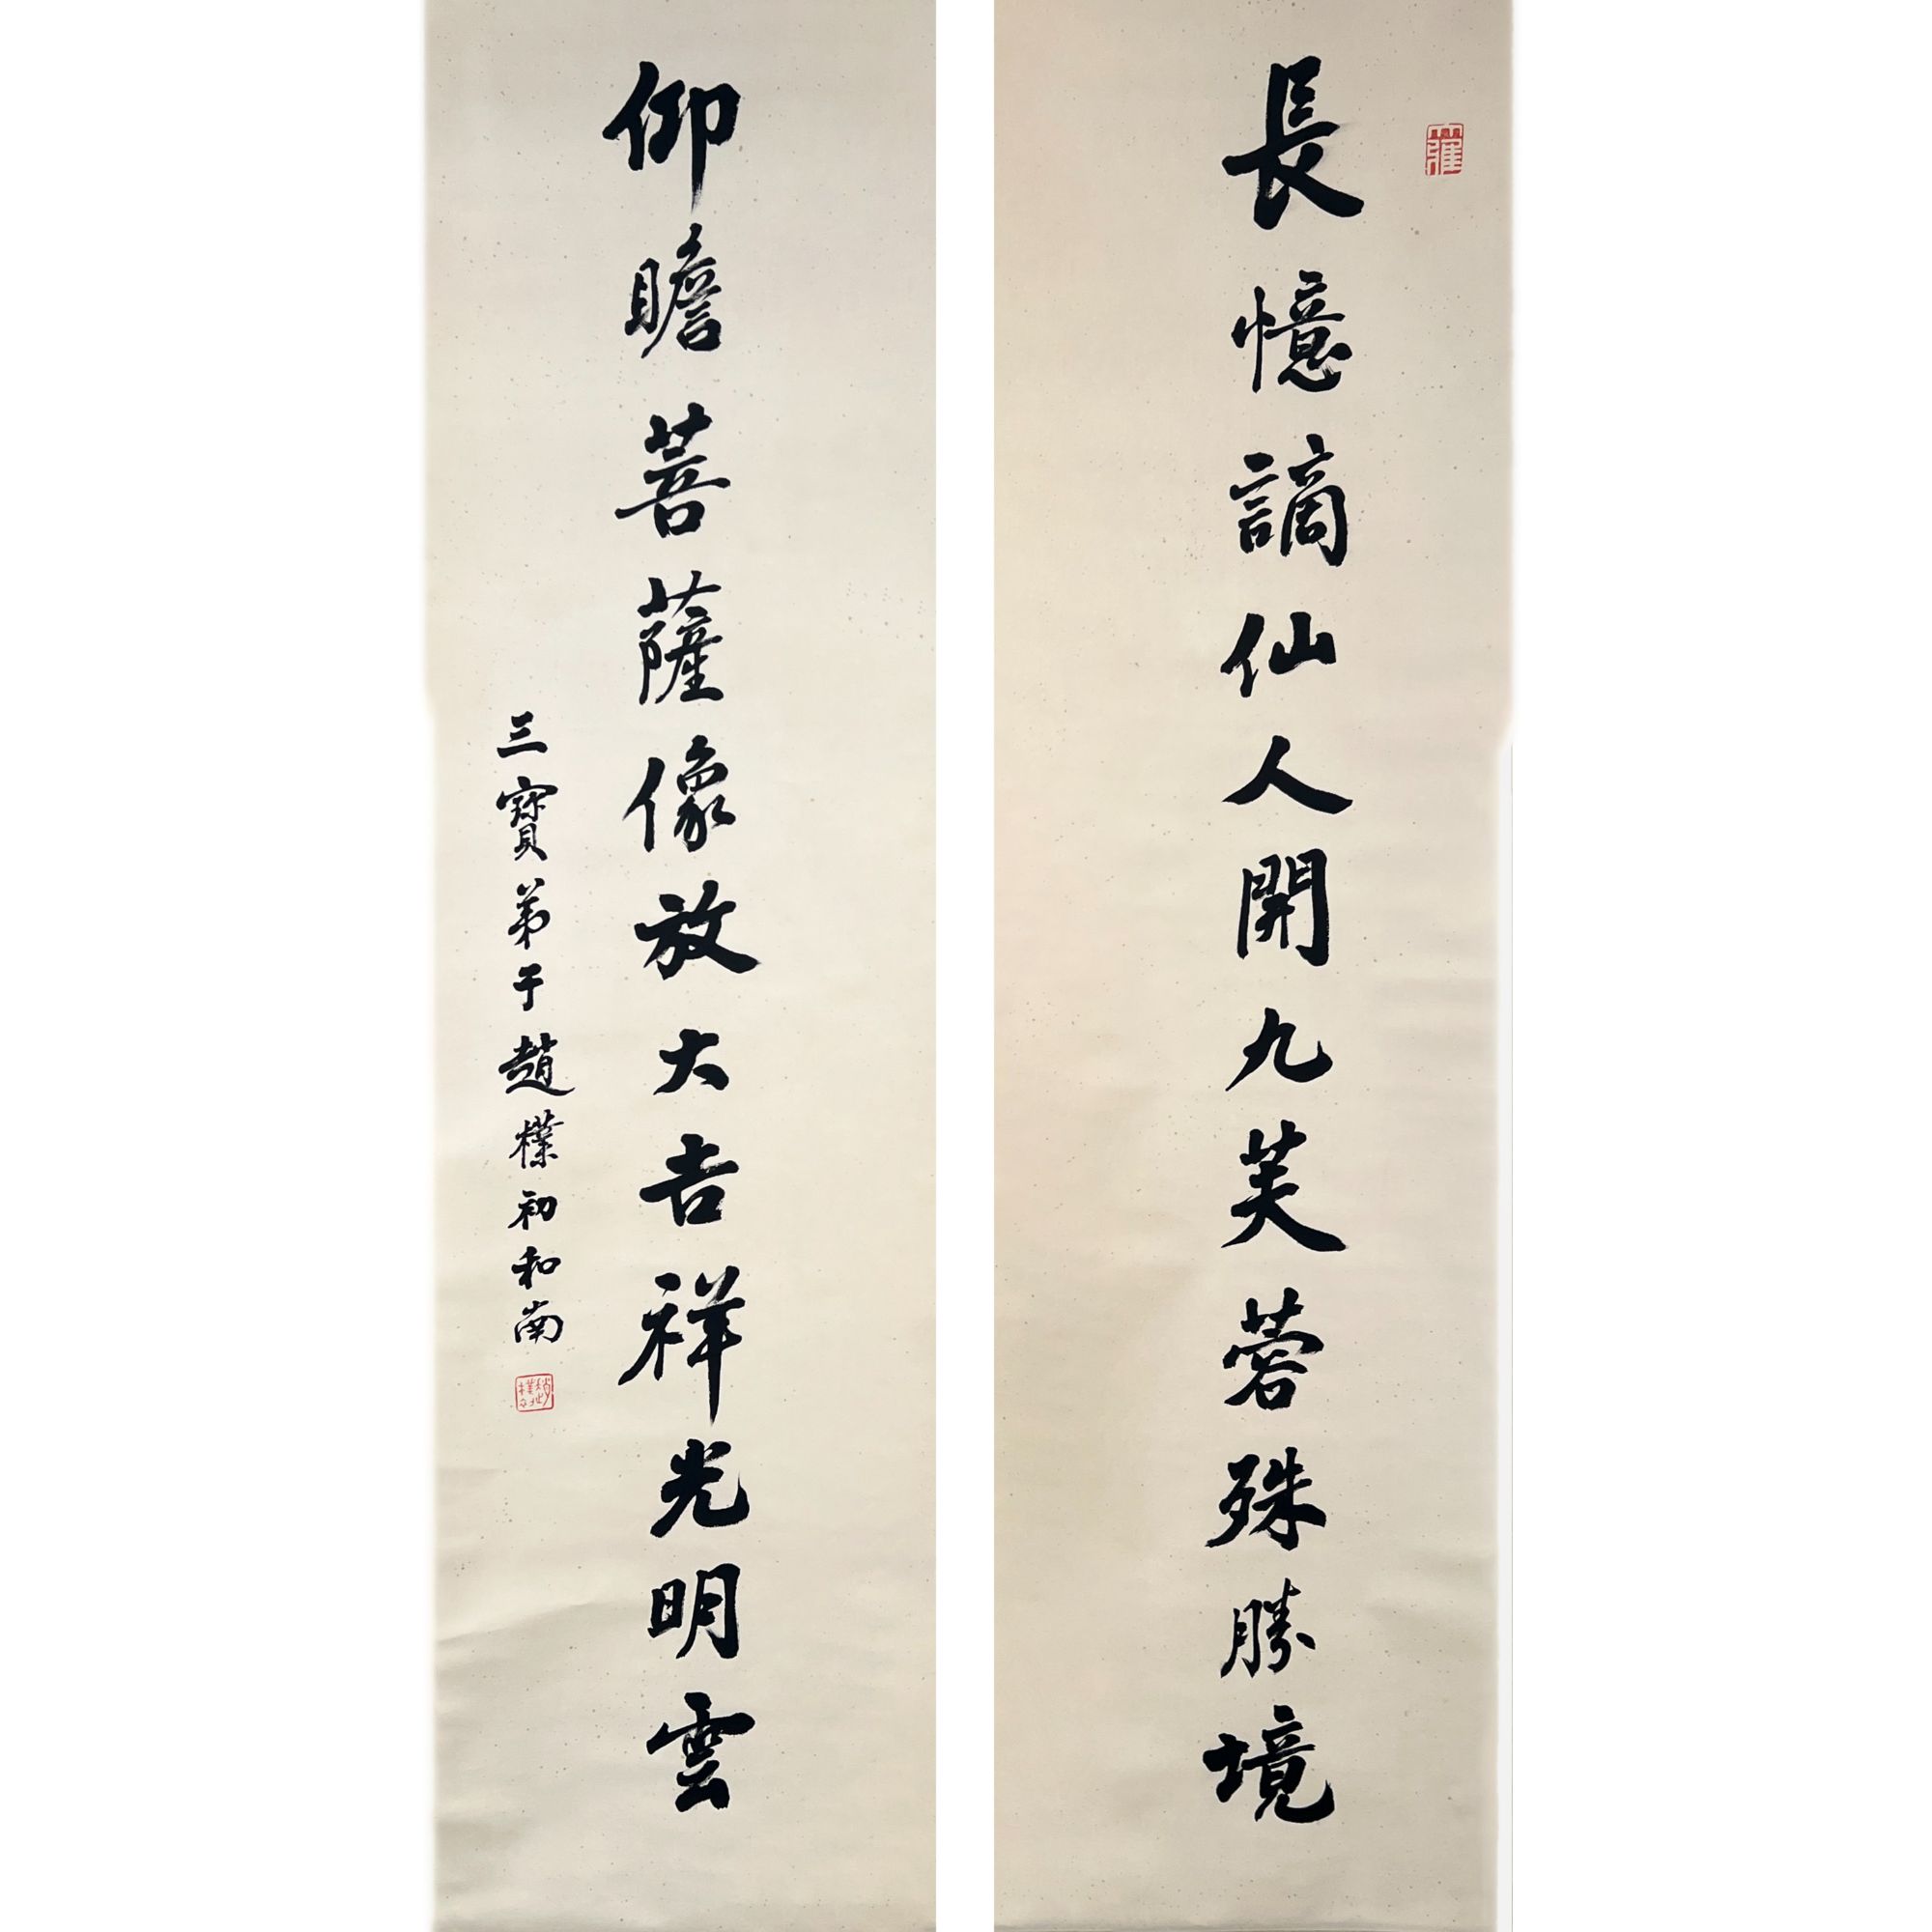 長憶謫仙人開九芙蓉殊勝境
仰瞻菩薩像放大吉祥光明雲
三寶弟子趙樸初和南